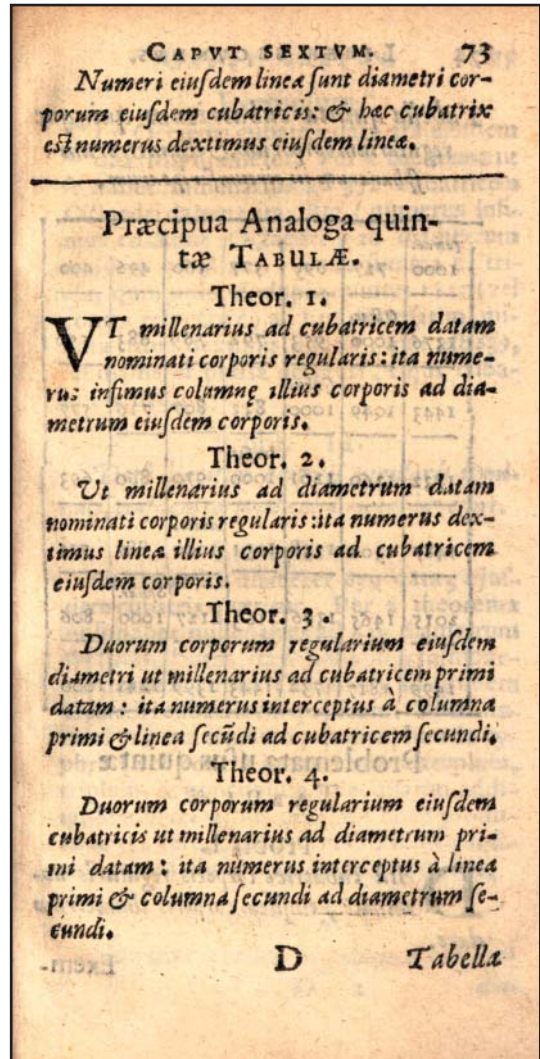 CAPVT SEXTVM. 73
Numeri eiuſdem lineæ ſunt diametri cor-
porum eiuſdem cubatricis: & hæc cubatrix
eſt numerus dextimus eiuſdem lineæ.
Præcipua Analoga quin-
tæ TABULÆ.
Theor. 1.
VT millenarius ad cubatricem datam
nominati corporis regularis: ita nume-
rus infimus columnę illius corporis ad dia-
metrum eiuſdem corporis.
Theor. 2.
Ut millenarius ad diametrum datam
nominati corporis regularis: ita numerus dex-
timus lineæ illius corporis ad cubatricem
eiuſdem corporis.
Theor. 3.
Duorum corporum regularium eiuſdem
diametri ut millenarius ad cubatricem primi
datam: ita numerus interceptus à columna
primi & linea ſecũdi ad cubatricem ſecundi.
Theor. 4.
Duorum corporum regularium eiuſdem
cubatricis ut millenarius ad diametrum pri-
mi datam: ita numerus interceptus à linea
primi & columna ſecundi ad diametrum ſe-
cundi.
D Tabellæ